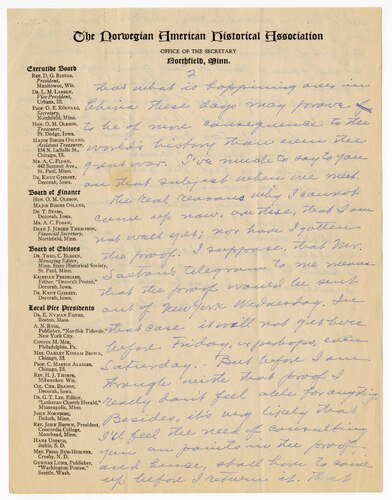 The Norwegian American Historical Association
OFFICE OF THE SECRETARY
Northfield, Minn.
Executive Board
REV. D. G. RISTAD,
President,
Manitowoc, Wis.
DR. L. M. LARSEN,
Vice President,
Urbana, Ill.
PROF. O. E. RÖLVAAG,
Secretary,
Northfield, Minn.
HON. O. M. OLESON,
Treasurer,
Ft. Dodge, Iowa.
MAJOR BIRGER OSLAND,
Assistant Treasurer,
134 N. LaSalle St.,
Chicago, Ill.
MR. A. C. FLOAN,
442 Summit Ave.,
St. Paul, Minn.
DR. KNUT GJERSET,
Decorah, Iowa.
Board of Finance
HON. O. M. OLESON,
MAJOR BIRGER OSLAND,
DR. T. STABO,
Decorah, Iowa.
MR. A. C. FLOAN,
DEAN J. JÖRGEN THOMPSON,
Financial Secretary,
Northfield, Minn.
Board of Editors
DR. THEO. C. BLEGEN,
Managing Editor,
Minn. State Historical Society,
St. Paul, Minn.
KRISTIAN PRESTGARD,
Editor, "Decorah Posten",
Decorah, Iowa.
DR. KNUT GJERSET,
Decorah, Iowa.
Local Vice Presidents
DR. E. NYMAN FIGVED,
Boston, Mass.
A. N. RYGG,
Publisher, "Nordisk Tidende,"
New York City.
CONSUL M. MOE,
Philadelphia, Pa.
MRS. OAKLEY KISSAM BROWN,
Chicago, Ill.
PROF. C. MARTIN ALSAGER,
Chicago, Ill.
REV. H. J. THORPE,
Milwaukee Wis.
COL. CHR. BRANDT,
Decorah, Iowa.
DR. G. T. LEE, Editor,
"Lutheran Church Herald,"
Minneapolis, Minn.
JOHN NORNBORG,
Duluth, Minn.
REV. JOHN BROWN, President,
Concordia College,
Moorhead, Minn.
HANS USTRUD,
Baltic, S. D.
MRS. FRIDA BUE-HOMNES,
Crosby, N. D.
GUNNAR LUND, Publisher,
"Washington Posten,"
Seattle, Wash.
2
that what is happening over in
China these days may prove
to be of more consequence to the
world's history than even the
great war. I've much to say to you
on that subject when we meet.
The real reasons why I cannot
come up now, are these, that I am
not well yet; nor have I gotten
the proof. I suppose, that Mr.
telegram to me means
that the proof would be sent
out of New York Wednesday. In
that case it will not get here
before Friday, or perhaps, even
Saturday. But before I am
through with that proof I
really don't feel able for anything
Besides, it's very likely that
I'll feel the need of consulting
you on points in the proof,
and hence, shall have to come
up before I return it. That